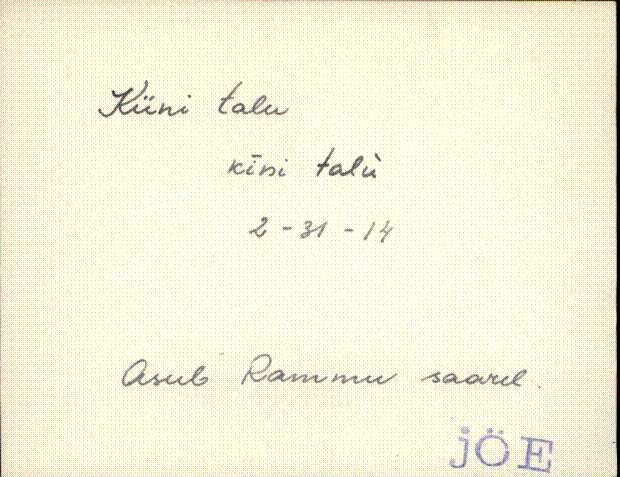 Küni talu
kīni talù
2-31-14
Asub Rammu saarel.
JÖE